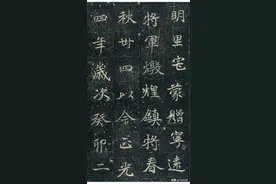 明里宅蒙贈寧遠
將軍燉煌鎮將春
秋卌四以今正光
四年歲次癸卯二